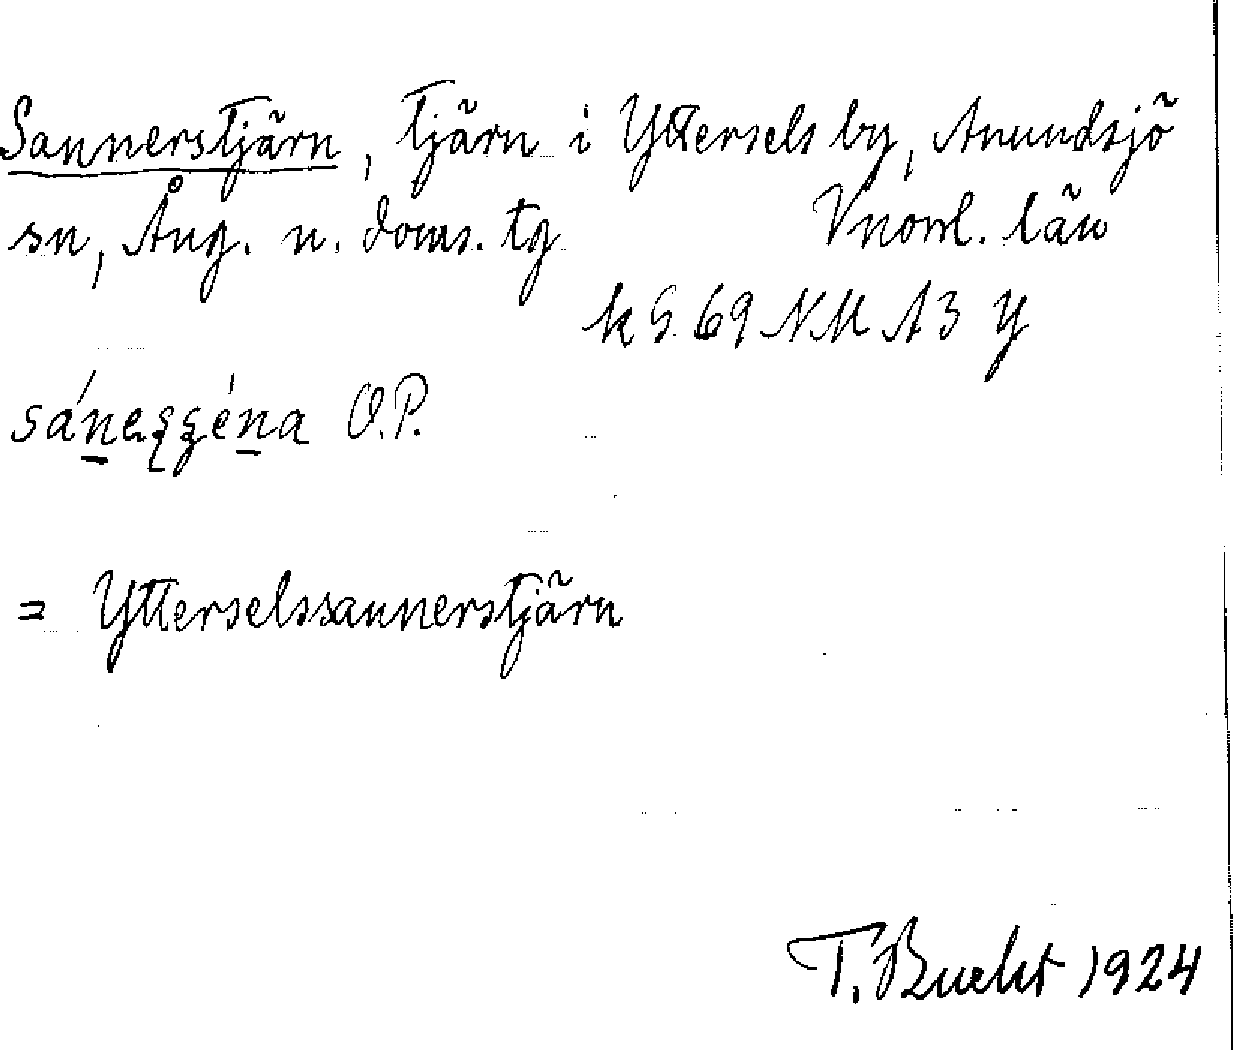 Sannerstjärn, tjärn i Yttersels by, Anundsjö
sn, Ång. n. doms. tg Vnorrl. län
k G. 69 NM A3 Y
O.P.
= Ytterselssannerstjärn
T. Bucht 1924